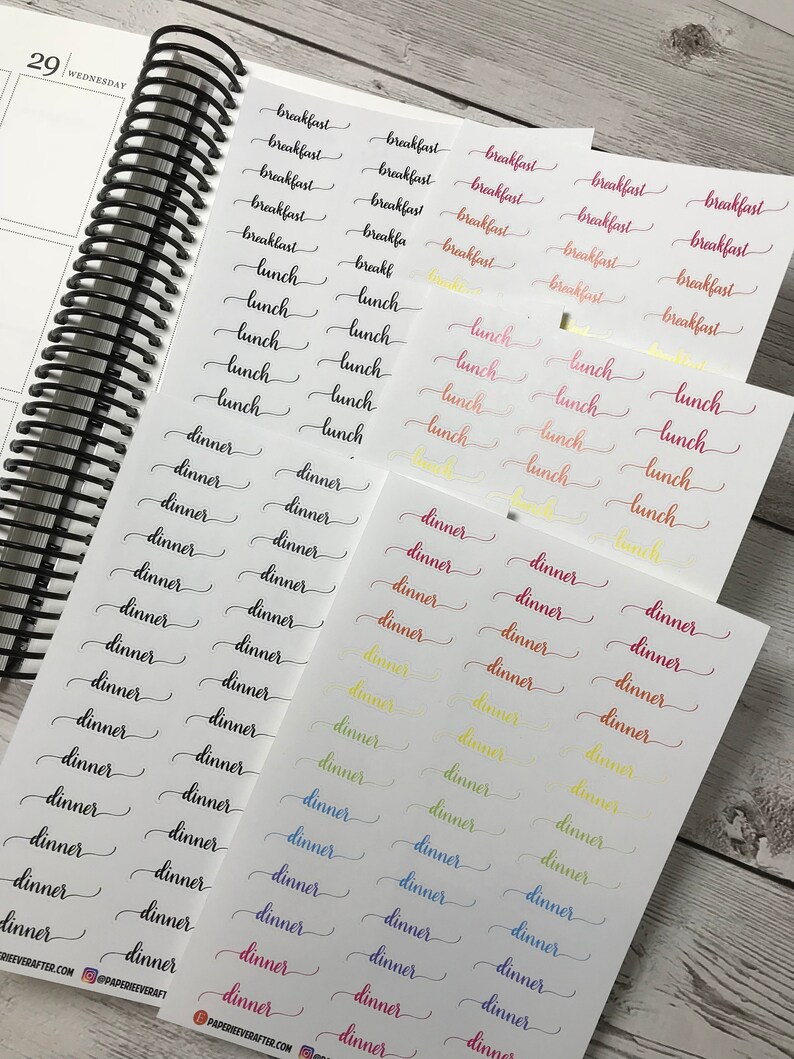 29 WEDNESDAY
breakfast breakfast
breakfast breakfast
breakfast breakfast
breakfast breakfast
breakfast breakfast
lunch lunch
lunch lunch
lunch lunch
lunch lunch
lunch lunch
breakfast breakfast breakfast
breakfast breakfast breakfast
breakfast breakfast breakfast
breakfast breakfast breakfast
breakfast
lunch lunch lunch
lunch lunch lunch
lunch lunch lunch
lunch lunch lunch
lunch lunch lunch
dinner dinner
dinner dinner
dinner dinner
dinner dinner
dinner dinner
dinner dinner
dinner dinner
dinner dinner
dinner dinner
dinner dinner
dinner dinner
dinner dinner
dinner dinner
dinner dinner
PERIEEVERAFTER.COM @PAPERIEEVERAFTER
dinner dinner dinner
dinner dinner dinner
dinner dinner dinner
dinner dinner dinner
dinner dinner dinner
dinner dinner dinner
dinner dinner dinner
dinner dinner dinner
dinner dinner dinner
dinner dinner dinner
dinner dinner dinner
dinner dinner dinner
dinner dinner dinner
dinner dinner
PAPERIEEVERAFTER.COM @PAP